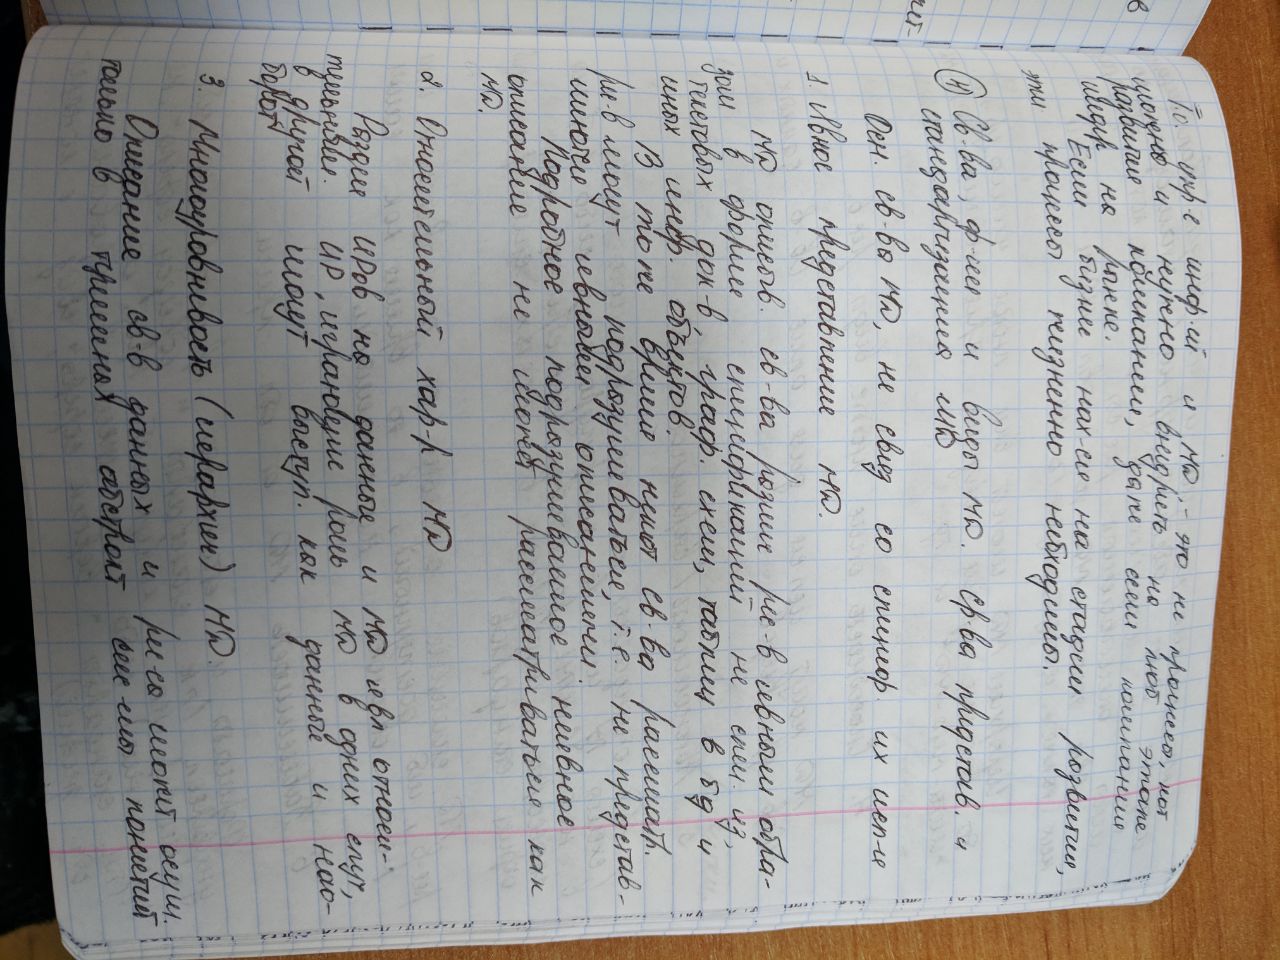 То. упр-е инф-ей и МД, - это не прогресс, кот
можно и нужно внедрять на кот этапе
развития компании, даже если компания
на рынке.
Если бизнес нах-ся на стадии развития,
эти процессы жизненно необходимы.
(4) Св-ва, ф-ии и виды МД. Ср-ва представ. и
стандартизация МД
Осн. св-ва МД, не связ со специф. их исп-я
1. Явное представление МД.
МД описыв. св-ва различ рес-в явным обра-
зом в форме спецификаций на спец. яз,
текстовых док-в, граф. схем, таблиц в БД и
иных инф. объектов.
В то же время нект св-ва рассматр.
рес-в могут подразумеваться, т.е. не представ-
ляются явными описаниями.
Подробное подразумеваемое неявное
описание не может рассматриваться как
МД.
2. Относительный хар-р МД
Раздие ИРов на данные и МД явл относи-
тельные. ИР, играющие роль МД в одних случ,
в других могут выступ. как данные и нао-
борот
3. Многоуровневость (иерархич) МД.
Описание св-в данных и рес-ов может осущ
только в терминах абстракт сис-мы понятий